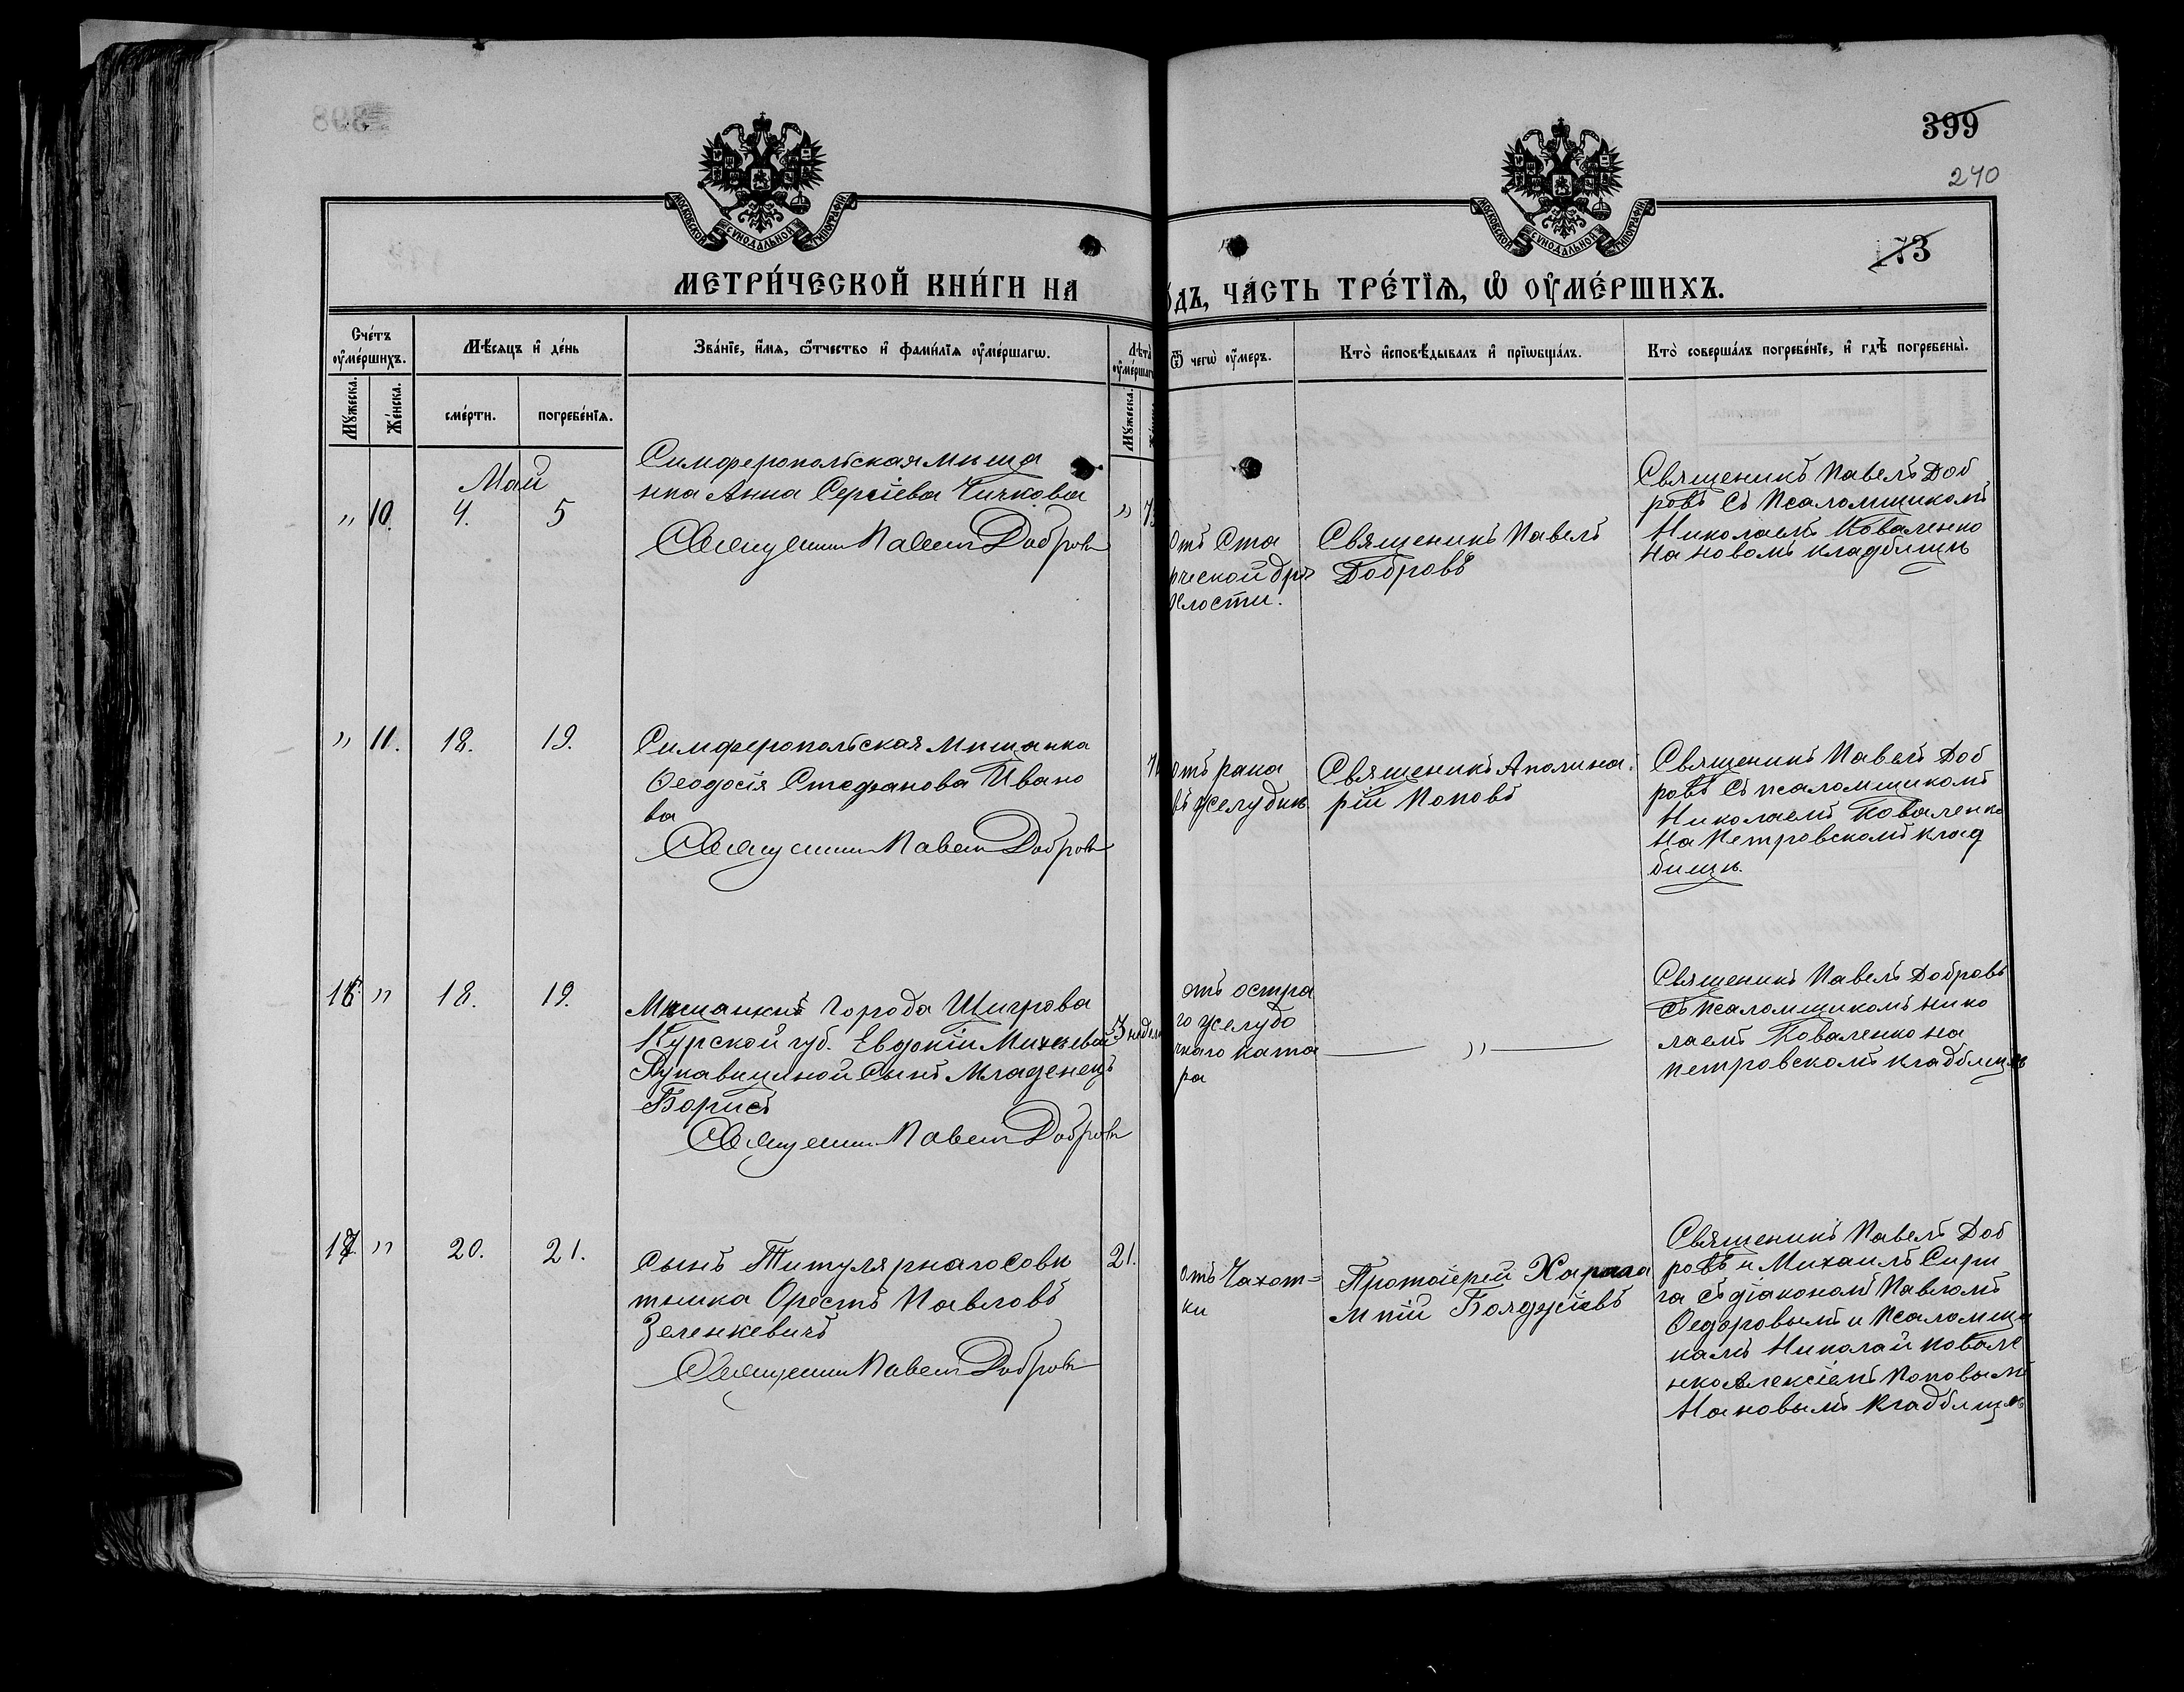 399
240
173
МОСКОВСКОЙ СѴНОДАЛЬНОЙ ТИПОГРАФІИ
МОСКОВСКОЙ СѴНОДАЛЬНОЙ ТИПОГРАФІИ
МЕТРИ́ЧЕСКОЙ КНИ́ГИ НА
ДЪ, ЧА́СТЬ ТРЕ́ТЇѦ, Ѡ҆ ОУ҆МЕ́РШИХЪ.
Сче́тъ оу҆ме́ршихъ.
Мѣ́сяцъ и҆ де́нь
Зва́нїе, и҆́мя, ѻ҆́тчество и҆ фами́лїя оу҆ме́ршагѡ.
Лѣта̀ оу҆ме́ршаг
Ѿ чегѡ̀ оу҆́меръ.
Кто̀ и҆сповѣ́дывалъ и҆ прїѡбща́лъ.
Кто̀ соверша́лъ погребе́нїе, и҆ гдѣ̀ погребены̀.
Мꙋ́жеска.
Же́нска.
сме́рти.
погребе́нїя.
Мꙋ́жеска.
Май
" 10. 4. 5
Симферопольская мѣща
нка Анна Сергіева Чичкова
Священникъ Павелъ Добровъ
"
отъ Ста
рческой дря
хлости.
Священикъ Павелъ
Добровъ
Священикъ Павелъ Доб
ровъ съ Псаломщикомъ
Николаемъ Коваленко
на новомъ кладбищѣ
" 11. 18. 19.
Симферопольская Мѣщанка
Ѳеодосія Стефанова Ивано
ва
Священникъ Павелъ Добровъ
отъ рака
въ желудкѣ
Священикъ Аполина
рій Поповъ
Священикъ Павелъ Доб
ровъ съ псаломщикомъ
Николаемъ Коваленко
на Петровскомъ клад
бищѣ.
16. " 18. 19.
Мѣщанки города Щигрова
Курской губ. Евдокіи Михеевой
Лукавицыной сынъ младенецъ
Борисъ
Священникъ Павелъ Добровъ
3 недели
отъ остра
го желудо
чнаго ката
ра
— " —
Священикъ Павелъ Добровъ
съ Псаломщикомъ Нико
лаемъ Коваленко на
петровскомъ кладбищѣ
17. " 20. 21.
Сынъ Титулярнаго Совѣ
тника Орестъ Павловъ
Зеленкевичъ
Священникъ Павелъ Добровъ
21.
отъ Чахот=
ки
Протоіерей Харала
мпій Болджіевъ
Священикъ Павелъ Доб
ровъ и Михаилъ Сири
га съ діакономъ Павломъ
Ѳедоровымъ и Псаломщи
камъ Николай Ковале
нко Алексіемъ Поповымъ
На новымъ кладбищѣ